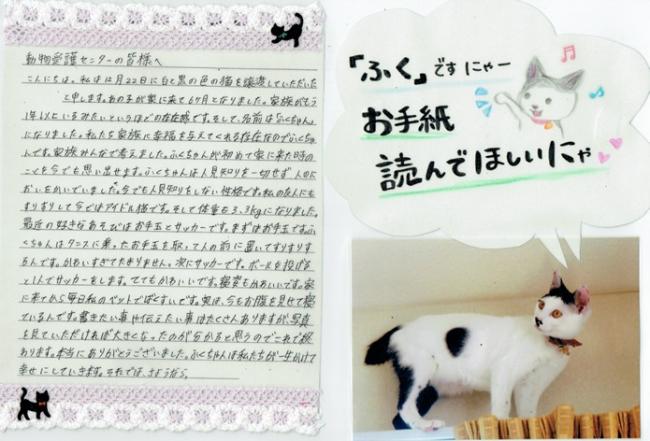 動物愛護センターの皆様へ
こんにちは。私は12月22日に白と黒の色の猫を譲渡していただいた
と申します。あの子が家に来て6ヶ月となりました。家族がもう
1年以上いるみたいというほどの存在感です。そして、名前は「ふくちゃん」
になりました。私たち家族に幸福を与えてくれる存在なのでふくちゃ
んです。家族みんなで考えました。ふくちゃんが初めて家に来た時の
ことを今でも思い出せます。ふくちゃんは人見知りを一切せず人のに
おいをかいでいました。今でも人見知りをしない性格です。私の友人にも
すりすりして今ではアイドル猫です。そして体重も3.3kgになりました。
最近の好きなあそびはお手玉とサッカーです。まずはお手玉です。ふ
くちゃんはタンスに乗ったお手玉を取って人の前に置いてすりすりす
るんです。かわいすぎてたまりません。次にサッカーです。ボールを投げる
と1人でサッカーをします。とてもかわいいです。寝姿もかわいいです。家
に来てから毎日私のベットでばくすいです。実は、今もお腹を見せて寝
ているんです。書きたい事や伝えたい事はたくさんありますが、写真
を見ていただければ大きくなったのが分かると思うのでこれで終
わります。本当にありがとうございました。ふくちゃんは私たちが一生かけて
幸せにしていきます。それでは、さようなら。
「ふく」ですにゃー
お手紙
読んでほしいにゃ